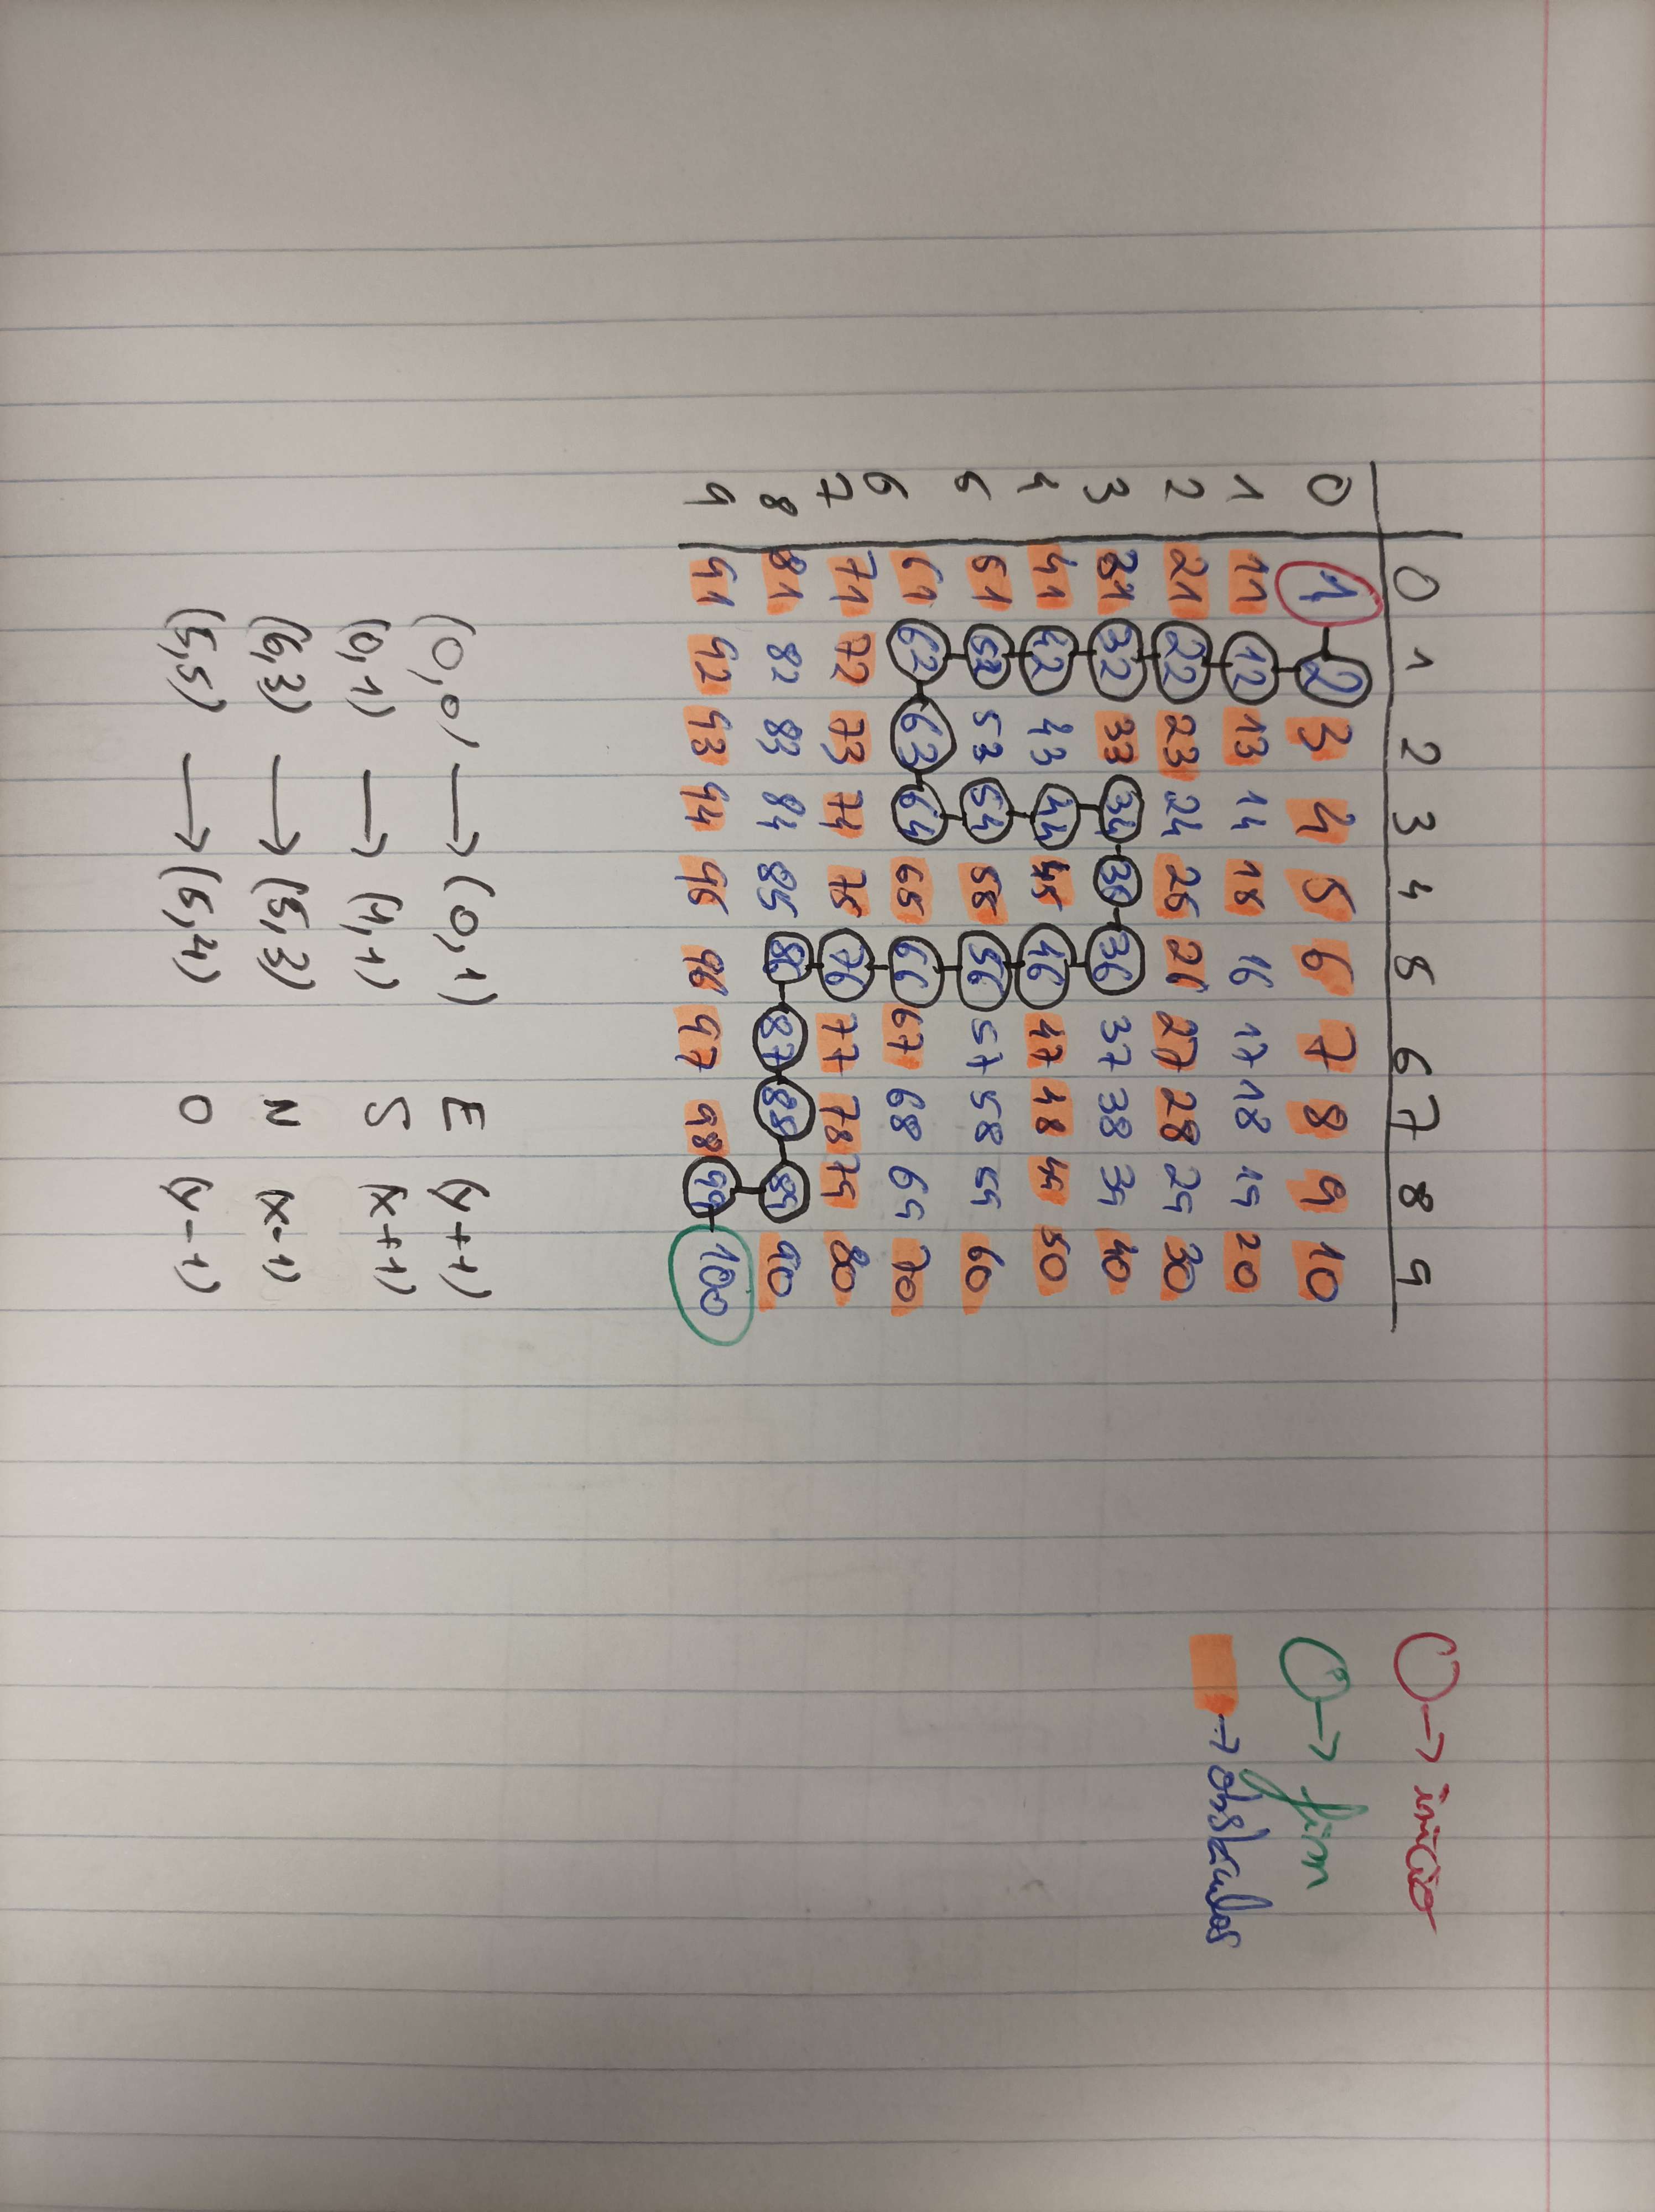 0 1 2 3 4 5 6 7 8 9
0 1 2 3 4 5 6 7 8 9 10
1 11 12 13 14 15 16 17 18 19 20
2 21 22 23 24 25 26 27 28 29 30
3 31 32 33 34 35 36 37 38 39 40
4 41 42 43 44 45 46 47 48 49 50
5 51 52 53 54 55 56 57 58 59 60
6 61 62 63 64 65 66 67 68 69 70
7 71 72 73 74 75 76 77 78 79 80
8 81 82 83 84 85 86 87 88 89 90
9 91 92 93 94 95 96 97 98 99 100
→ inicio
→ fim
→ obstáculos
(0,0) → (0,1) E (y+1)
(0,1) → (1,1) S (x+1)
(6,3) → (5,3) N (x-1)
(5,5) → (5,4) O (y-1)